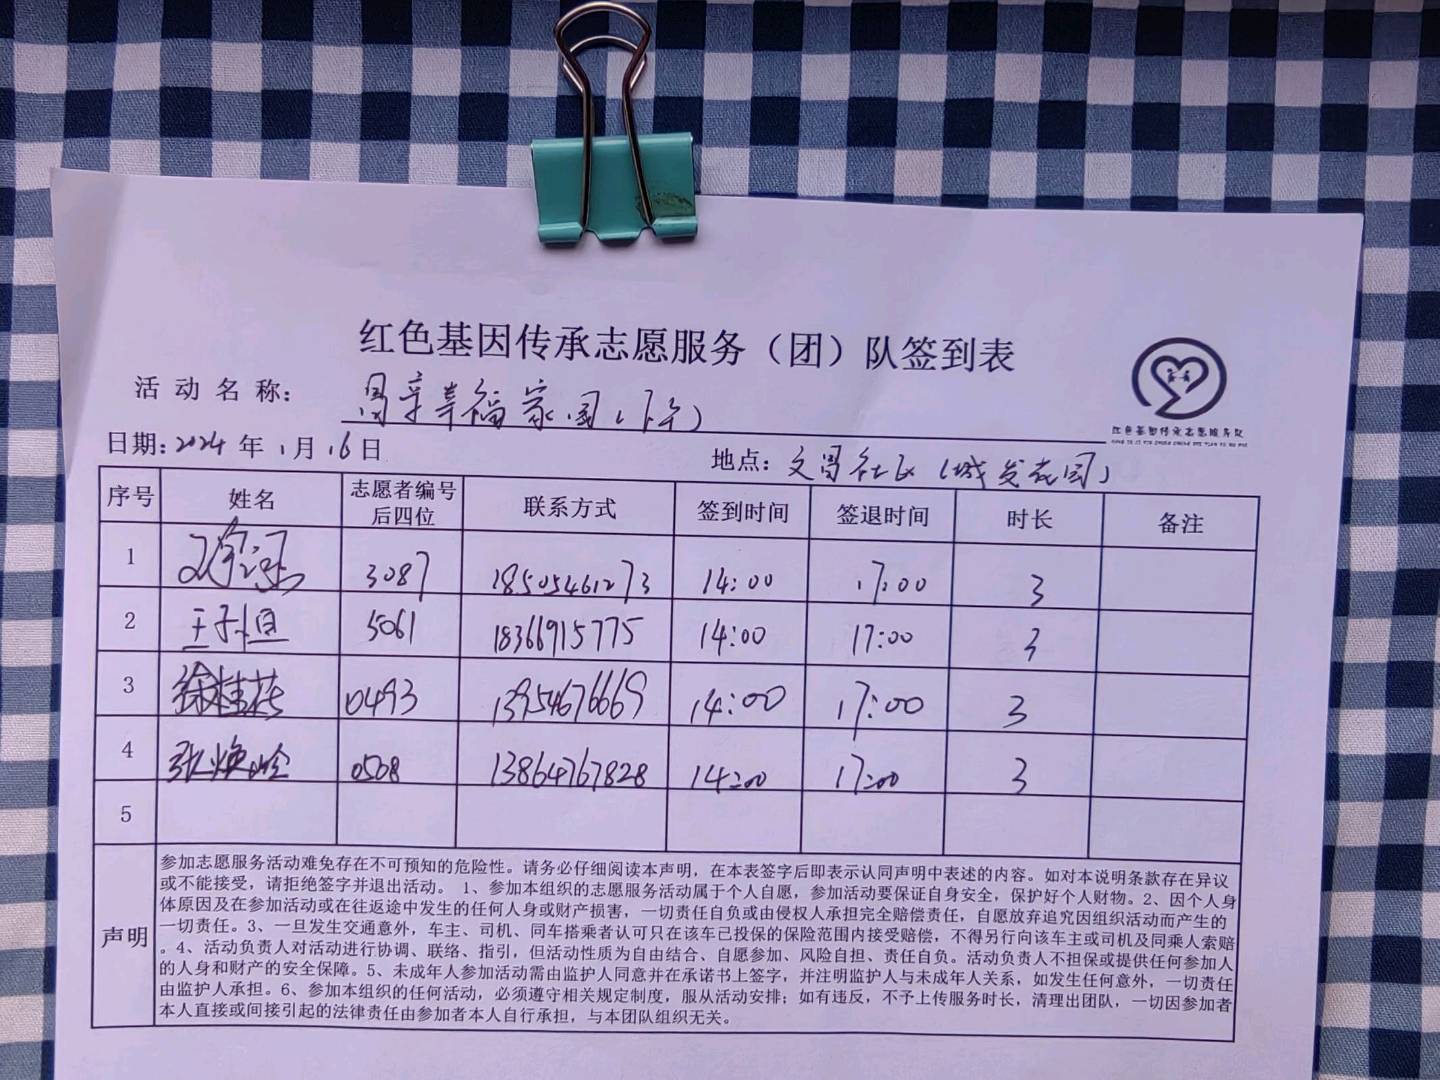 红色基因传承志愿服务（团）队签到表
活动名称： 幸福家园（下午）
红色基因传承志愿服务队
日期：2024年1月16日
地点：文昌社区（城发花园）
序号 姓名 志愿者编号后四位 联系方式 签到时间 签退时间 时长 备注
1 3087 18505461273 14:00 17:00 3
2 王子恒 5061 18366915775 14:00 17:00 3
3 徐桂花 0493 13954676669 14:00 17:00 3
4 张焕玲 0508 13864767828 14:00 17:00 3
5
声明
参加志愿服务活动难免存在不可预知的危险性。请务必仔细阅读本声明，在本表签字后即表示认同声明中表述的内容。如对本说明条款存在异议
或不能接受，请拒绝签字并退出活动。 1、参加本组织的志愿服务活动属于个人自愿，参加活动要保证自身安全，保护好个人财物。2、因个人身
体原因及在参加活动或在往返途中发生的任何人身或财产损害，一切责任自负或由侵权人承担完全赔偿责任，自愿放弃追究因组织活动而产生的
一切责任。3、一旦发生交通意外，车主、司机、同车搭乘者认可只在该车已投保的保险范围内接受赔偿，不得另行向该车主或司机及同乘人索赔
。4、活动负责人对活动进行协调、联络、指引，但活动性质为自由结合、自愿参加、风险自担、责任自负。活动负责人不担保或提供任何参加人
的人身和财产的安全保障。5、未成年人参加活动需由监护人同意并在承诺书上签字，并注明监护人与未成年人关系，如发生任何意外，一切责任
由监护人承担。6、参加本组织的任何活动，必须遵守相关规定制度，服从活动安排；如有违反，不予上传服务时长，清理出团队，一切因参加者
本人直接或间接引起的法律责任由参加者本人自行承担，与本团队组织无关。